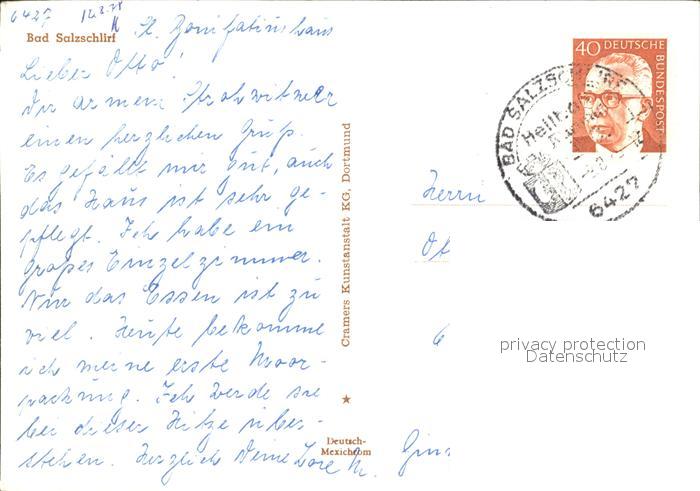 6427 12.8.75
Bad Salzschlirf St. Bonifatiushaus
Lieber Otto!
Dir armem Strohwitwer
einen herzlichen Gruß.
Es gefällt mir gut, auch
das Haus ist sehr ge-
pflegt. Ich habe ein
großes Einzelzimmer.
Nur das Essen ist zu
viel. Heute bekomme
ich meine erste Moor-
packung. Ich werde sie
bei dieser Hitze über-
stehen. Herzlich Deine Lore M.
Cramers Kunstanstalt KG, Dortmund
Deutsch-
Mexichrom
40 DEUTSCHE
BUNDESPOST
BAD SALZSCHLIRF
Heilbad
6427
Herrn
Ot
6
privacy protection
Datenschutz